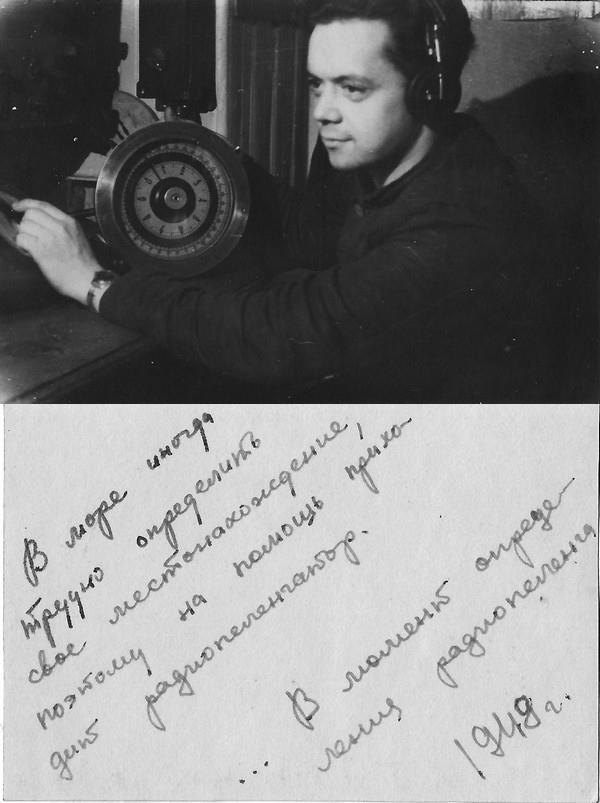 В море иногда
трудно определить
свое местонахождение,
поэтому на помощь прихо-
дит радиопеленгатор.
... В момент опреде-
ления радиопеленга
1949 г.